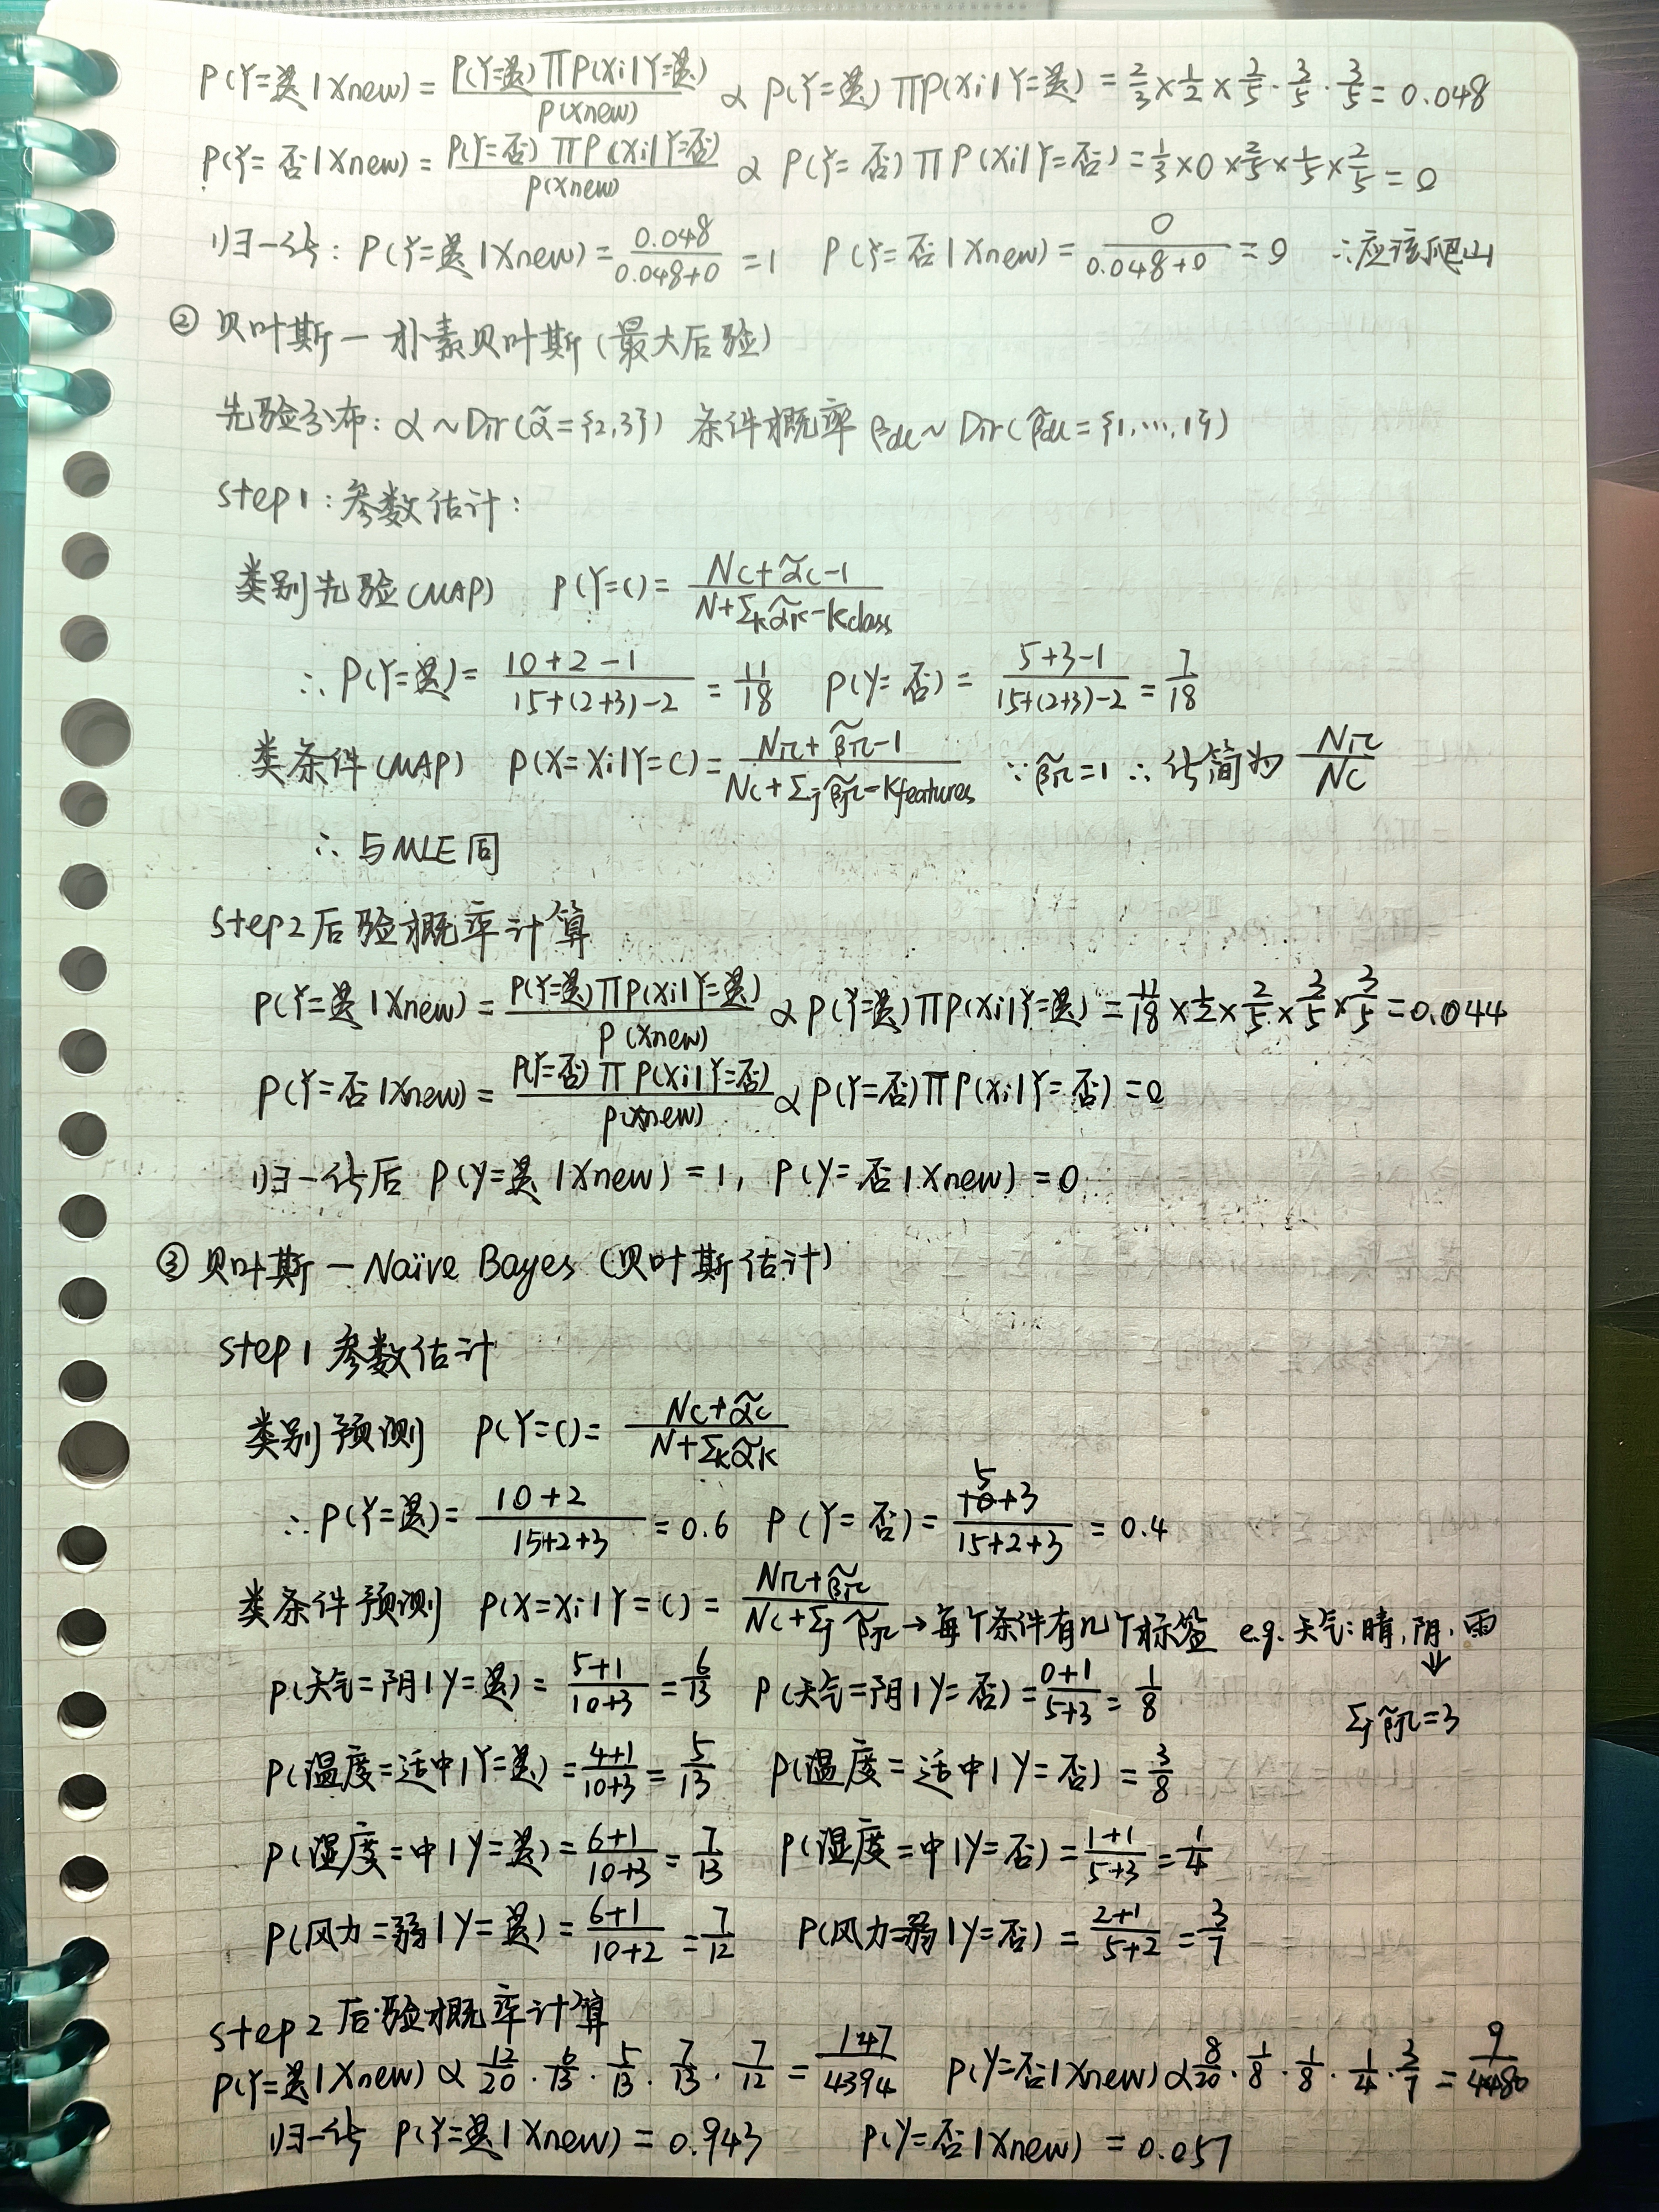 P(Y=是|Xnew) = P(Y=是)∏P(Xi|Y=是)/P(Xnew) ∝ P(Y=是)∏P(Xi|Y=是) = 2/3 × 1/2 × 2/5 · 3/5 · 3/5 = 0.048
P(Y=否|Xnew) = P(Y=否)∏P(Xi|Y=否)/P(Xnew) ∝ P(Y=否)∏P(Xi|Y=否) = 1/3 × 0 × 2/5 × 1/5 × 2/5 = 0
归一化: P(Y=是|Xnew) = 0.048/(0.048+0) = 1 P(Y=否|Xnew) = 0/(0.048+0) = 0 ∴应该爬山
② 贝叶斯—朴素贝叶斯(最大后验)
先验分布: α~Dir(α̃={2,3}) 条件概率 βdc~Dir(β̃dc={1,…,1})
step1:参数估计:
类别先验(MAP) P(Y=C) = (Nc+α̃c-1)/(N+Σkα̃k-Kclass)
∴ P(Y=是) = (10+2-1)/(15+(2+3)-2) = 11/18 P(Y=否) = (5+3-1)/(15+(2+3)-2) = 7/18
类条件(MAP) P(X=Xi|Y=C) = (Nic+β̃ic-1)/(Nc+Σjβ̃jc-Kfeatures) ∵β̃ic=1 ∴化简为 Nic/Nc
∴ 与MLE同
step2 后验概率计算
P(Y=是|Xnew) = P(Y=是)∏P(Xi|Y=是)/P(Xnew) ∝ P(Y=是)∏P(Xi|Y=是) = 11/18 × 1/2 × 2/5 × 3/5 × 3/5 = 0.044
P(Y=否|Xnew) = P(Y=否)∏P(Xi|Y=否)/P(Xnew) ∝ P(Y=否)∏P(Xi|Y=否) = 0
归一化后 P(Y=是|Xnew) = 1, P(Y=否|Xnew) = 0
③ 贝叶斯—Naïve Bayes (贝叶斯估计)
step1 参数估计
类别预测 P(Y=C) = (Nc+α̃c)/(N+Σkα̃k)
∴ P(Y=是) = (10+2)/(15+2+3) = 0.6 P(Y=否) = (5+3)/(15+2+3) = 0.4
类条件预测 P(X=Xi|Y=C) = (Nic+β̃ic)/(Nc+Σjβ̃jc) →每个条件有几个标签 e.g.天气:晴,阴,雨
⇓
P(天气=阴|Y=是) = (5+1)/(10+3) = 6/13 P(天气=阴|Y=否) = (0+1)/(5+3) = 1/8 Σjβ̃jc=3
P(温度=适中|Y=是) = (4+1)/(10+3) = 5/13 P(温度=适中|Y=否) = 3/8
P(湿度=中|Y=是) = (6+1)/(10+3) = 7/13 P(湿度=中|Y=否) = (1+1)/(5+3) = 1/4
P(风力=弱|Y=是) = (6+1)/(10+2) = 7/12 P(风力=弱|Y=否) = (2+1)/(5+2) = 3/7
step2 后验概率计算
P(Y=是|Xnew) ∝ 12/20 · 6/13 · 5/13 · 7/13 · 7/12 = 147/4394 P(Y=否|Xnew) ∝ 8/20 · 1/8 · 1/8 · 1/4 · 3/7 = 9/4480
归一化 P(Y=是|Xnew) = 0.943 P(Y=否|Xnew) = 0.057